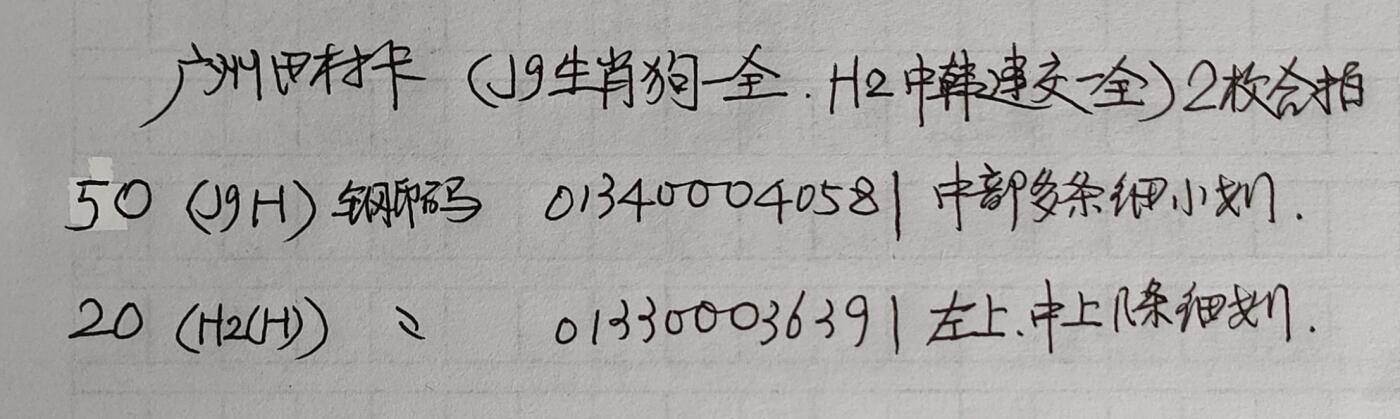 广州田村卡（J9生肖狗一全．H2中韩建交一全）2枚合拍
50（J9H）钢印码 013400040581 中部多条细小划．
20（H2(H)）〻 013300036391 左上．中上几条细划．